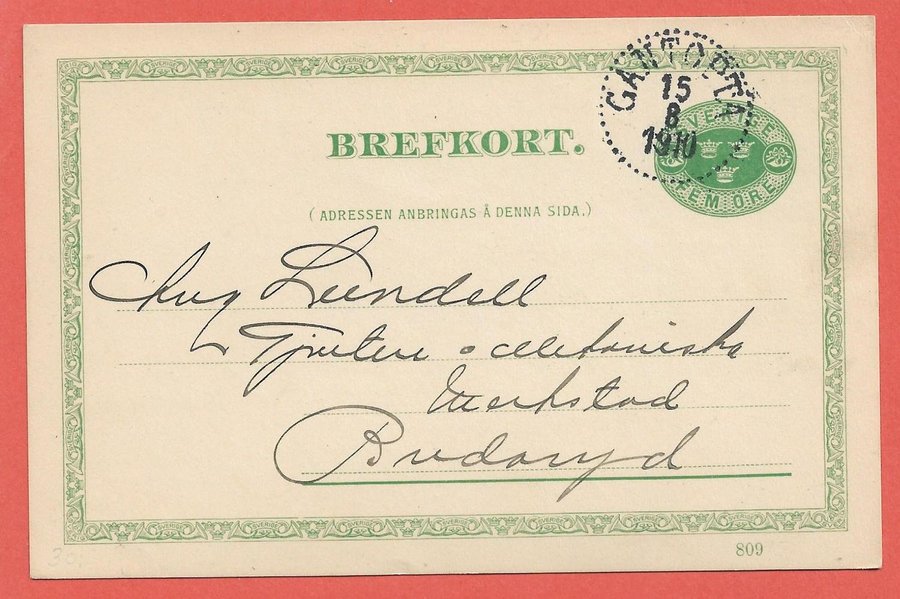 GANTOFTA
15
8
1910
SVERIGE
FEM ÖRE
BREFKORT.
(ADRESSEN ANBRINGAS Å DENNA SIDA.)
Aug Lundell
Gjuteri o Mekaniska
Verkstad
Bredaryd
809